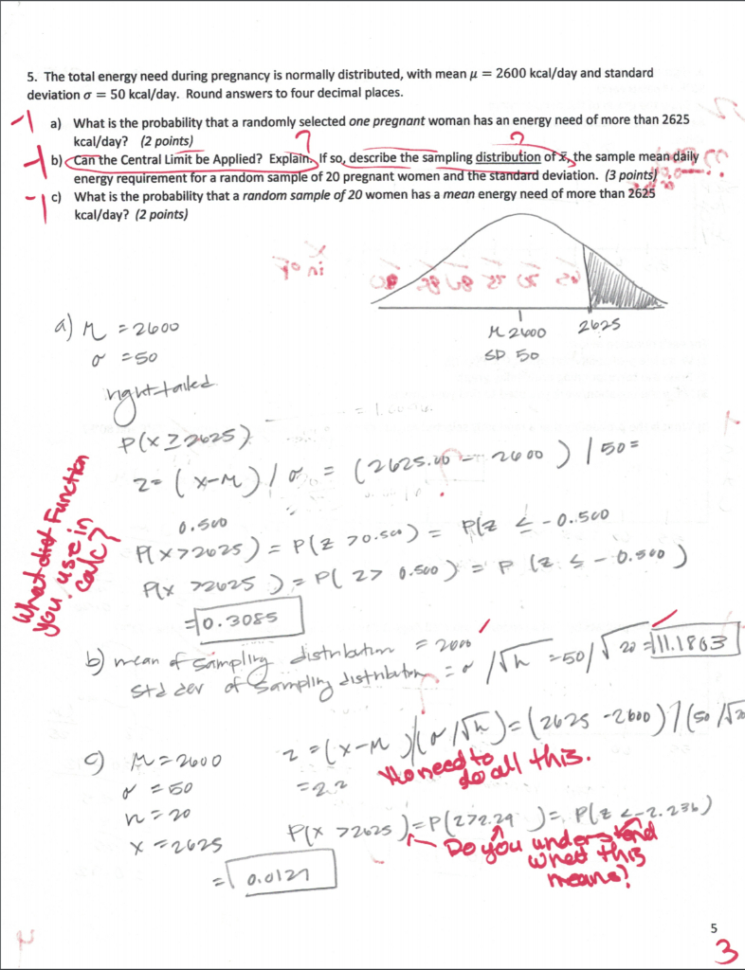 5. The total energy need during pregnancy is normally distributed, with mean μ = 2600 kcal/day and standard
deviation σ = 50 kcal/day. Round answers to four decimal places.
-1 a) What is the probability that a randomly selected one pregnant woman has an energy need of more than 2625
kcal/day? (2 points)
? ?
-1 b) Can the Central Limit be Applied? Explain. If so, describe the sampling distribution of x̄, the sample mean daily
energy requirement for a random sample of 20 pregnant women and the standard deviation. (3 points)
-1 c) What is the probability that a random sample of 20 women has a mean energy need of more than 2625
kcal/day? (2 points)
M 2600 2625
SD 50
a) M = 2600
σ = 50
right-tailed
P(x ≥ 2625)
z = (x-M) / σ = (2625.00 - 2600) / 50 =
0.500
P(x >2625) = P(z >0.500) = P(z ≤ -0.500
P(x >2625) = P(z > 0.500) = P (z ≤ -0.500)
= 0.3085
What dist Function
you use in
calc?
b) mean of sampling distribution = 2600
std dev of sampling distribution = σ /√n = 50/√20 = 11.1803
c) M = 2600
σ = 50
n = 20
x = 2625
z = (x-M)/(σ/√n) = (2625 - 2600) / (50 /√20
= 2.2
No need to
do all this.
P(x >2625) = P(z>2.24) = P(z <-2.236)
Do you understand
what this
means?
= 0.0127
5
3